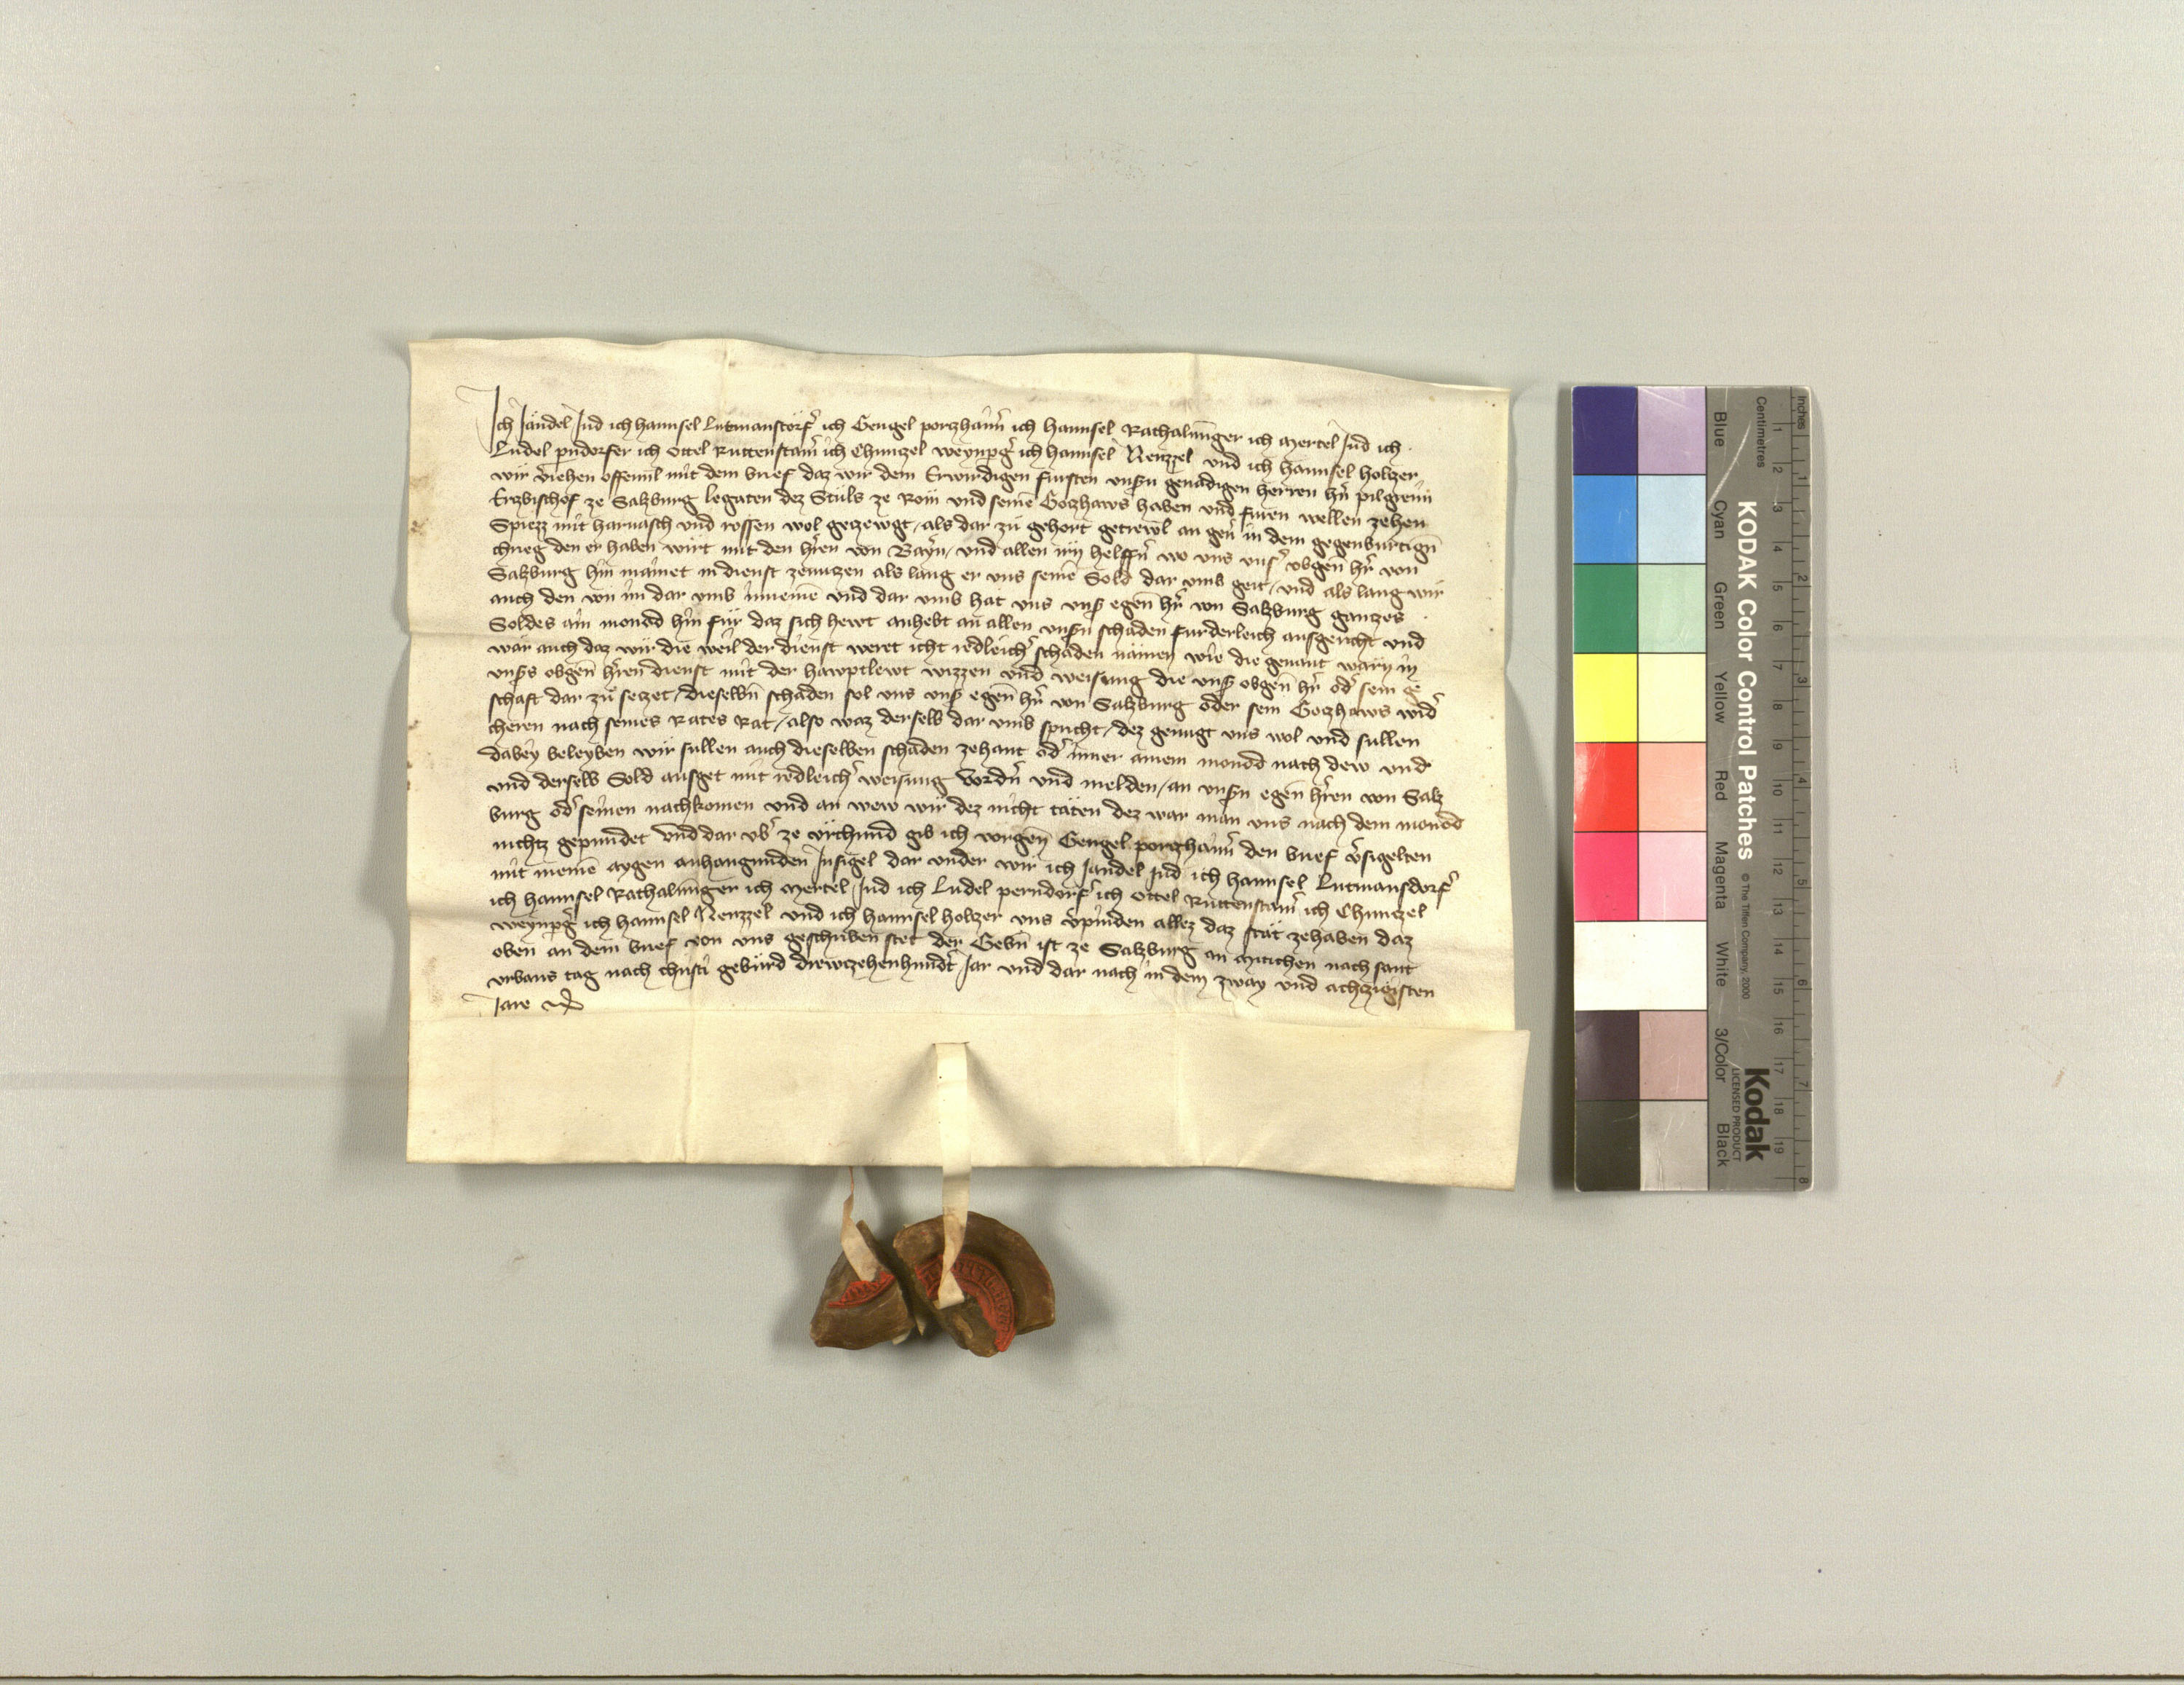 Ich Jändel Jud ich hannsel Lutmanstorf̾ ich Gengel porczhaim̾ ich hannsel Rathalminger ich Mertel Jud ich
Ludel p̱ndorfer ich Ottel Ruttenstain̾ ich Chunczel weynpg̾ ich hannsel Renzzel und ich hannsel holczer
wir v̾iehen offennl mit dem brief daz wir dem Erwirdigen fürsten unsn̄ genädigen herren hn̄ pilgreim
Erzbischof ze Salzburg legaten dez Stuls ze Rom und seinē Gotzhaws haben und füren wellen zehen
Spiezz mit harnasch und rossen wol geczewgt als dar zu gehort getrewl an gev̾ in dem gegenburtign̄
chrieg den er haben wirt mit den hr̄en von Bayr̄n und allen irn helffn̄ wo uns uns̾ obgen̄ hr̄ von
Salzburg hin mainet in dienst zenuczen als lang er uns seinē Sold dar umb geit und als lang wir
auch den von im dar umb innemē und dar umb hat uns uns̾ egen̄ hr̄ von Salzburg ganczes
Soldes ain monod hin für daz sich hewt anhebt an allen unsn̄ schaden furderleich ausgericht und
wär auch daz wir die weil der dienst weret icht redleich̾ schäden nämen wie die genant wärn in
uns̾s obgen̄ hr̄en dienst mit der hawptlewt wizzen und weisung die uns̾ obgen̄ hr̄ od̾ sein ge
schäft dar zu seczet dieselbn̄ schäden sol uns uns̾ egen̄ hr̄ von Salzburg oder sein Goczhaws wid̾
cheren nach seines Rates Rat also waz derselb dar umb spricht dez genugt uns wol und sullen
dabey beleyben wir sullen auch dieselben schäden zehant od̾ inner ainem monod nach dew und
und derselb Sold ausget mit redleich̾ weisung vordn̄ und melden an unsn̄ egen̄ hr̄en von Salz
burg od̾ seinen nachkomen und an wew wir dez nicht täten dez wär man uns nach dem monod
nichtz gepunden und dar ub̾ ze urchund gib ich vorgen̄ Gengel porczhaim̾ den brief v̾sigelten
mit meinē aygen anhangunden Insigel dar under wir ich Jandel Jud ich hannsel Lutmansdorf̾
ich hannsel Rathalminger ich Mertel Jud ich Ludel perndorf̾ ich Ottel Ruttenstain̾ ich Chunczel
weynpg̾ ich hannsel Renzzel und ich hannsel holczer uns v̾pinden allez daz stät zehaben daz
oben an dem brief von uns geschriben stet der Gebn̄ ist ze Salzburg an Mitichen nach sant
urbans tag nach christi gebürd drewczehenhundt̾ Jar und dar nach in dem zway und achtzigisten
Jare
KODAK Color Control Patches
© The Tiffen Company, 2000
Kodak
LICENSED PRODUCT
Blue Cyan Green Yellow Red Magenta White 3/Color Black
Centimetres 1 2 3 4 5 6 7 8 9 10 11 12 13 14 15 16 17 18 19
Inches 1 2 3 4 5 6 7 8